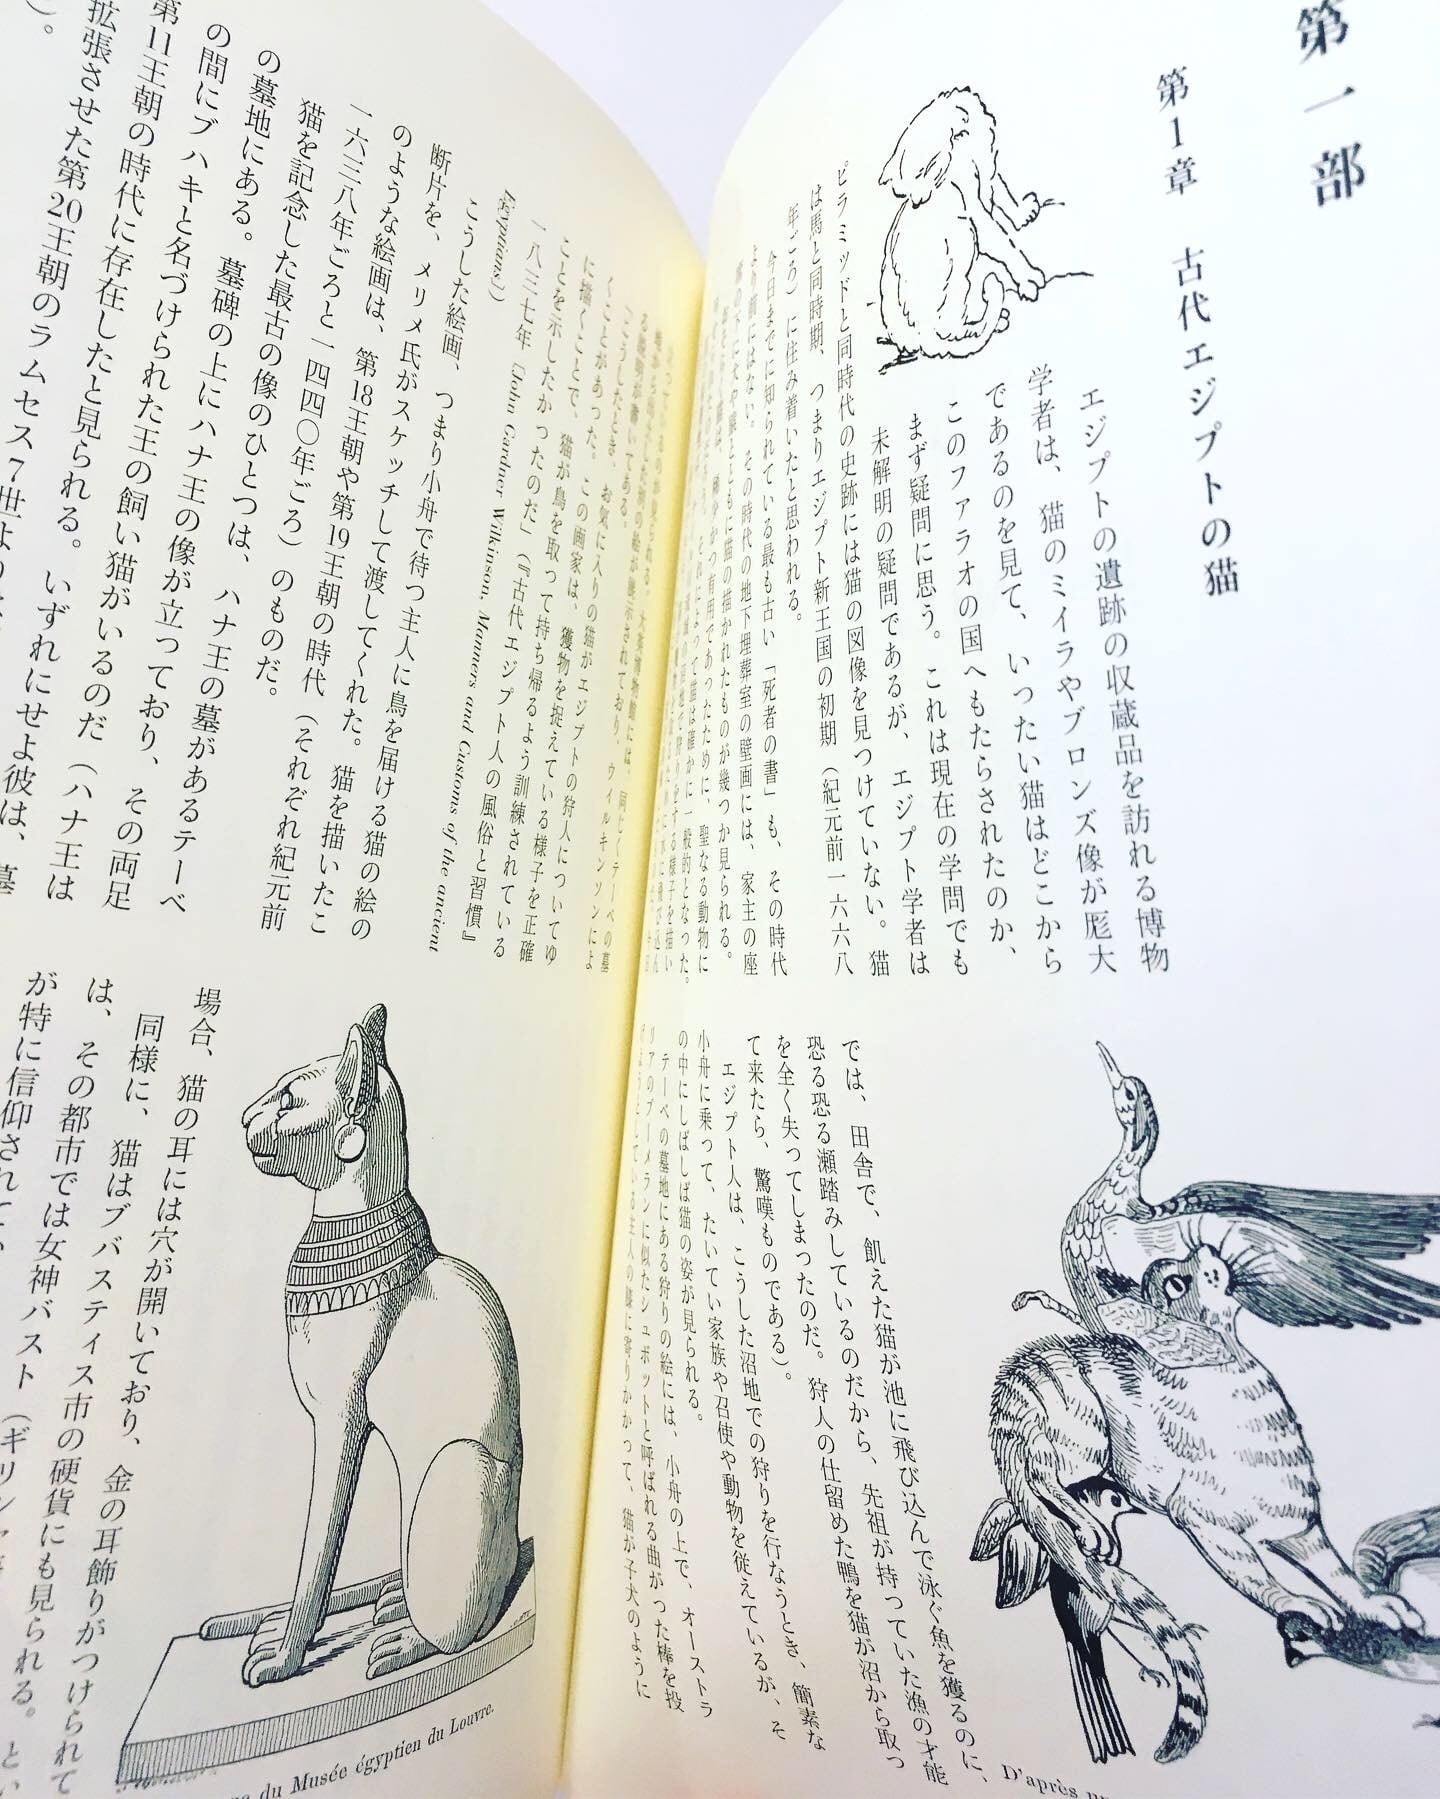 第一部
第1章　古代エジプトの猫
エジプトの遺跡の収蔵品を訪れる博物
学者は、猫のミイラやブロンズ像が厖大
であるのを見て、いったい猫はどこから
このファラオの国へもたらされたのか、
まず疑問に思う。これは現在の学問でも
未解明の疑問であるが、エジプト学者は
ピラミッドと同時代の史跡には猫の図像を見つけていない。猫
は馬と同時期、つまりエジプト新王国の初期（紀元前一六六八
年ごろ）に住み着いたと思われる。
今日までに知られている最も古い「死者の書」も、その時代
より前にはない。その時代の地下埋葬室の壁画には、家主の座
とともに猫の描かれたものが幾つか見られる。
有用であったために、聖なる動物に
よって猫は確かに一般的となった。
では、田舎で、飢えた猫が池に飛び込んで泳ぐ魚を獲るのに、
恐る恐る瀬踏みしているのだから、先祖が持っていた漁の才能
を全く失ってしまったのだ。狩人の仕留めた鴨を猫が沼から取っ
て来たら、驚嘆ものである）。
エジプト人は、こうした沼地での狩りを行なうとき、簡素な
小舟に乗って、たいてい家族や召使や動物を従えているが、そ
の中にしばしば猫の姿が見られる。
テーベの墓地にある狩りの絵には、小舟の上で、オーストラ
リアのブーメランに似たシュボットと呼ばれる曲がった棒を投
げようとしている主人の膝に寄りかかって、猫が子犬のように
D'après
大英博物館には、同じくテーベの墓
から出土した別の絵が展示されており、ウィルキンソンによ
る説明が書いてある。
「こうしたとき、お気に入りの猫がエジプトの狩人についてゆ
くことがあった。この画家は、獲物を捉えている様子を正確
に描くことで、猫が鳥を取って持ち帰るよう訓練されている
ことを示したかったのだ」（『古代エジプト人の風俗と習慣』
一八三七年〔John Gardner Wilkinson, Manners and Customs of the ancient
Egyptians〕）
こうした絵画、つまり小舟で待つ主人に鳥を届ける猫の絵の
断片を、メリメ氏がスケッチして渡してくれた。猫を描いたこ
のような絵画は、第18王朝や第19王朝の時代（それぞれ紀元前
一六三八年ごろと一四四〇年ごろ）のものだ。
猫を記念した最古の像のひとつは、ハナ王の墓があるテーベ
の墓地にある。墓碑の上にハナ王の像が立っており、その両足
の間にブハキと名づけられた王の飼い猫がいるのだ（ハナ王は
第11王朝の時代に存在したと見られる。いずれにせよ彼は、墓
拡張させた第20王朝のラムセス7世より
）。
場合、猫の耳には穴が開いており、金の耳飾りがつけられて
同様に、猫はブバスティス市の硬貨にも見られる。とい
は、その都市では女神バスト（ギリシャ
が特に信仰されて、
du Musée égyptien du Louvre.